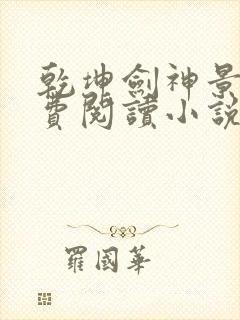 乾坤劍神景
費閱讀小說
羅國華